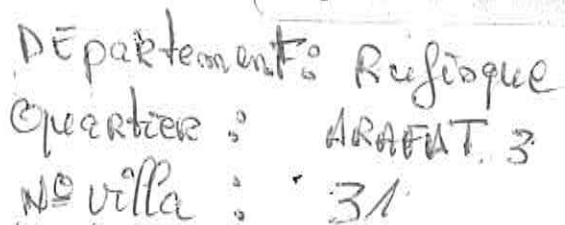 DEpartement : Rufisque
Quartier : ARAFAT. 3
Nº villa : 31